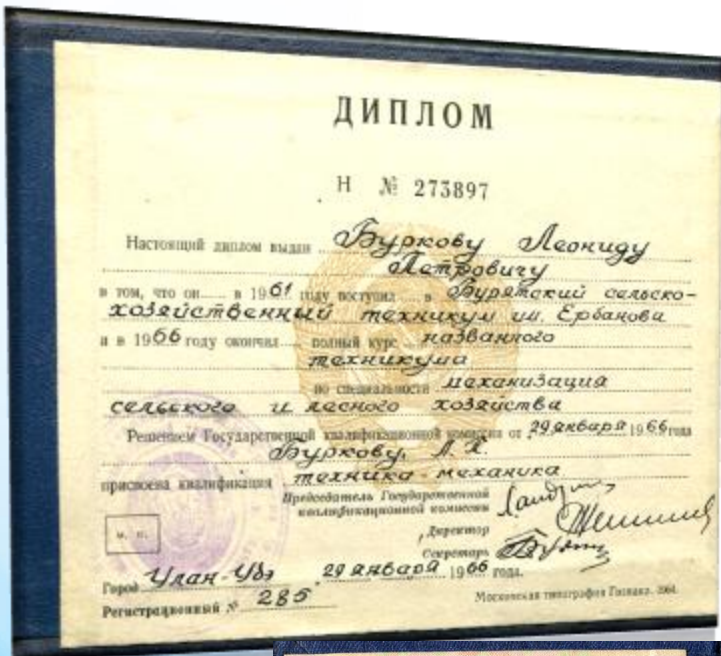 ДИПЛОМ
Н № 273897
Настоящий диплом выдан Буркову Леониду
Петровичу
в том, что он в 1961 году поступил в Бурятский сельско-
хозяйственный техникум им. Ербанова
и в 1966 году окончил полный курс названного
техникума
по специальности механизация
сельского и лесного хозяйства
Решением Государственной квалификационной комиссии от 29 января 1966 года
Буркову, Л. П.
присвоена квалификация техника-механика
Председатель Государственной
квалификационной комиссии
Директор
Секретарь
м. п.
Город Улан-Удэ 29 января 1966 года.
Регистрационный № 285
Московская типография Гознака. 1964.